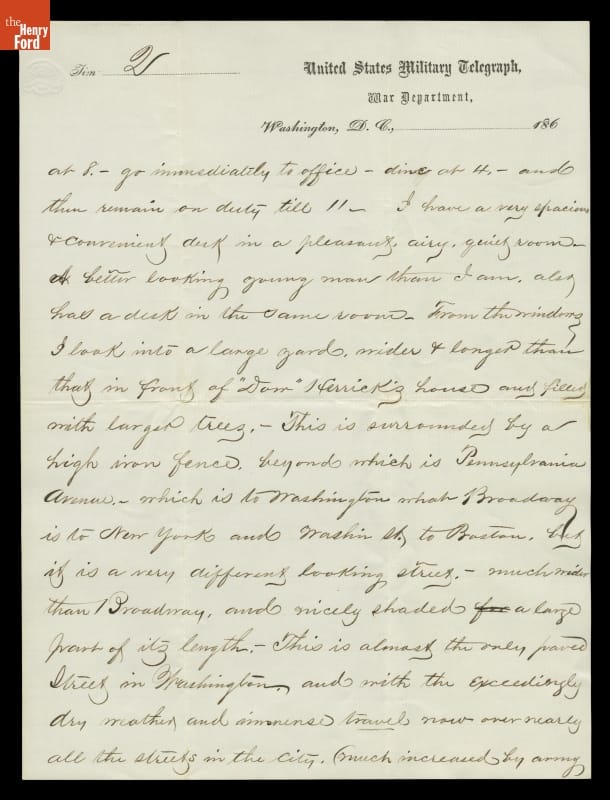 the
Henry
Ford
Tim 2
United States Military Telegraph,
War Department,
Washington, D. C., 186
at 8. - go immediately to office - dine at 4, - and
then remain on duty till 11 - I have a very spacious
& convenient desk in a pleasant, airy, quiet room -
A better looking young man than I am, also
has a desk in the same room - From the windows
I look into a large yard, wider & longer than
that in front of "Dow" Herrick's house and filled
with larger trees, - This is surrounded by a
high iron fence, beyond which is Pennsylvania
Avenue, - which is to Washington what Broadway
is to New York and Washin St, to Boston, but
it is a very different looking street, - much wider
than Broadway, and nicely shaded for a large
part of its length, - This is almost the only paved
Street in Washington, and with the exceedingly
dry weather and immense travel now over nearly
all the streets in the city, (much increased by army